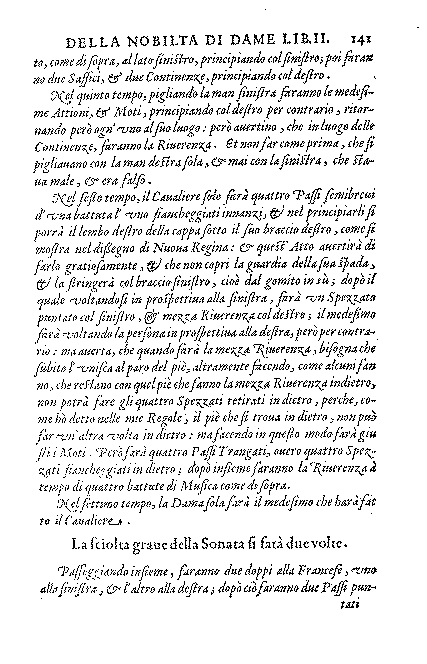 DELLA NOBILTA DI DAME LIB. II. 141
to, come di sopra, al lato sinistro, principiando col sinistro; poi faran
no due Saffici, & due Continenze, principiando col destro.
Nel quinto tempo, pigliando la man sinistra faranno le medesi-
me Attioni, & Moti, principiando col destro per contrario, ritor-
nando però ogn'vno al suo luogo: però auertino, che in luogo delle
Continenze, faranno la Riuerenza. Et non far come prima, che si
pigliauano con la man destra sola, & mai con la sinistra, che sta-
ua male, & era falso.
Nel sesto tempo, il Caualiere solo farà quattro Passi semibreui
d'vna battuta l'vno fiancheggiati innanzi, & nel principiarli si
porrà il lembo destro della cappa sotto il suo braccio destro, come si
mostra nel dissegno di Nuoua Regina: & quest'Atto auertirà di
farlo gratiosamente, & che non copri la guardia della sua spada,
& la stringerà col braccio sinistro, cioè dal gomito in sù; dopò il
quale voltandosi in prospettiua alla sinistra, farà vn Spezzato
puntato col sinistro, & mezza Riuerenza col destro; il medesimo
farà voltando la persona in prospettiua alla destra, però per contra-
rio: ma auerta, che quando farà la mezza Riuerenza, bisogna che
subito l'vnisca al paro del piè, altramente facendo, come alcuni fan
no, che restano con quel piè che fanno la mezza Riuerenza indietro,
non potrà fare gli quattro Spezzati retirati in dietro, perche, co-
me hò detto nelle mie Regole, il piè che si troua in dietro, non può
far vn'altra volta in dietro: ma facendo in questo modo farà giu
sti i Moti. Però farà quattro Passi Trangati, ouero quattro Spez-
zati fiancheggiati in dietro; dopò insieme faranno la Riuerenza à
tempo di quattro battute di Musica come di sopra.
Nel settimo tempo, la Dama sola farà il medesimo che harà fat
to il Caualiere.
La sciolta graue della Sonata si farà due volte.
Passeggiando insieme, faranno due doppi alla Francese, vno
alla sinistra, & l'altro alla destra; dopò ciò faranno due Passi pun-
tati